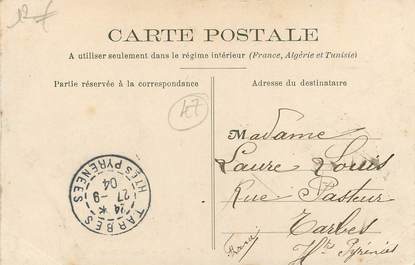 CARTE POSTALE
A utiliser seulement dans le régime intérieur (France, Algérie et Tunisie)
Partie réservée à la correspondance
Adresse du destinataire
47
Madame
Laure Louis
Rue Pasteur
Tarbes
Htes Pyrénées
TARBES
24 *
27 -9
04
HTES PYRENEES